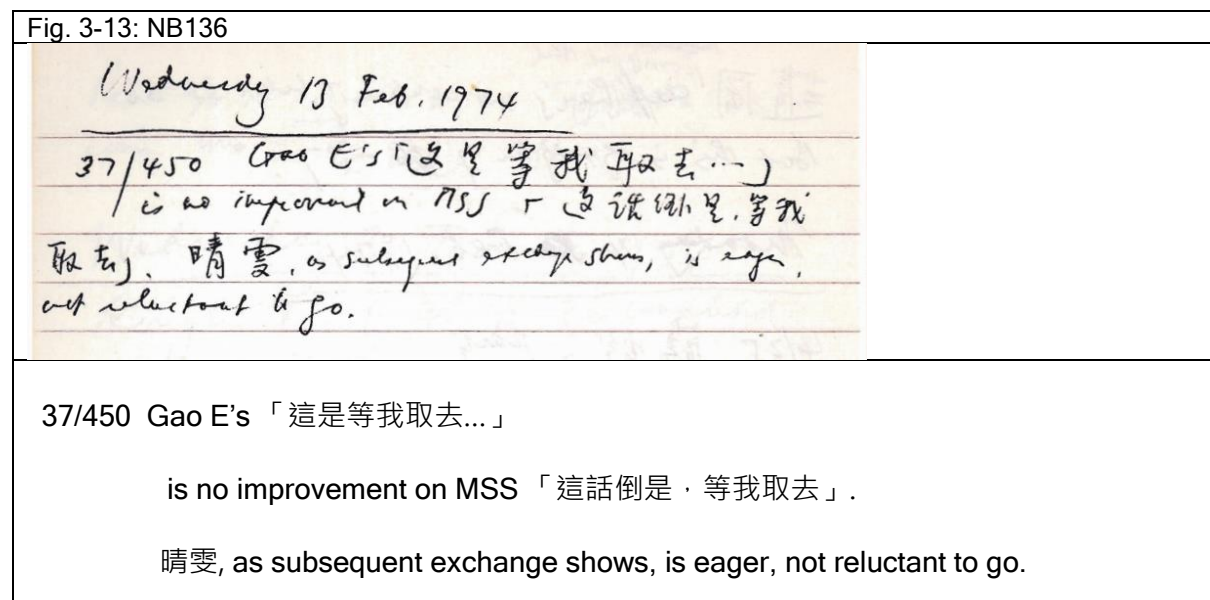 Fig. 3-13: NB136
Wednesday 13 Feb. 1974
37/450 Gao E's「这是等我取去…」
is no improvement on MSS「这话倒是，等我
取去」. 晴雯, as subsequent exchange shows, is eager,
not reluctant to go.
37/450 Gao E’s 「這是等我取去...」
is no improvement on MSS 「這話倒是，等我取去」.
晴雯, as subsequent exchange shows, is eager, not reluctant to go.